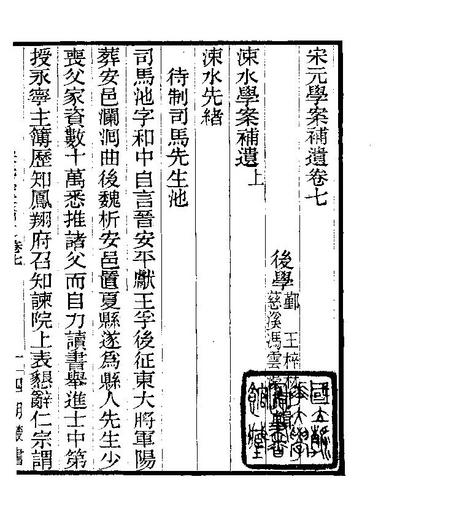 宋元學案補遺卷七
後學
鄞 王梓材
慈溪馮雲濠
涑水學案補遺上
涑水先緒
待制司馬先生池
司馬池字和中自言晉安平獻王孚後征東大將軍陽
葬安邑瀾洄曲後魏析安邑置夏縣遂爲縣人先生少
喪父家資數十萬悉推諸父而自力讀書舉進士中第
授永寧主簿歷知鳳翔府召知諫院上表懇辭仁宗謂
卷七
一
四明叢書